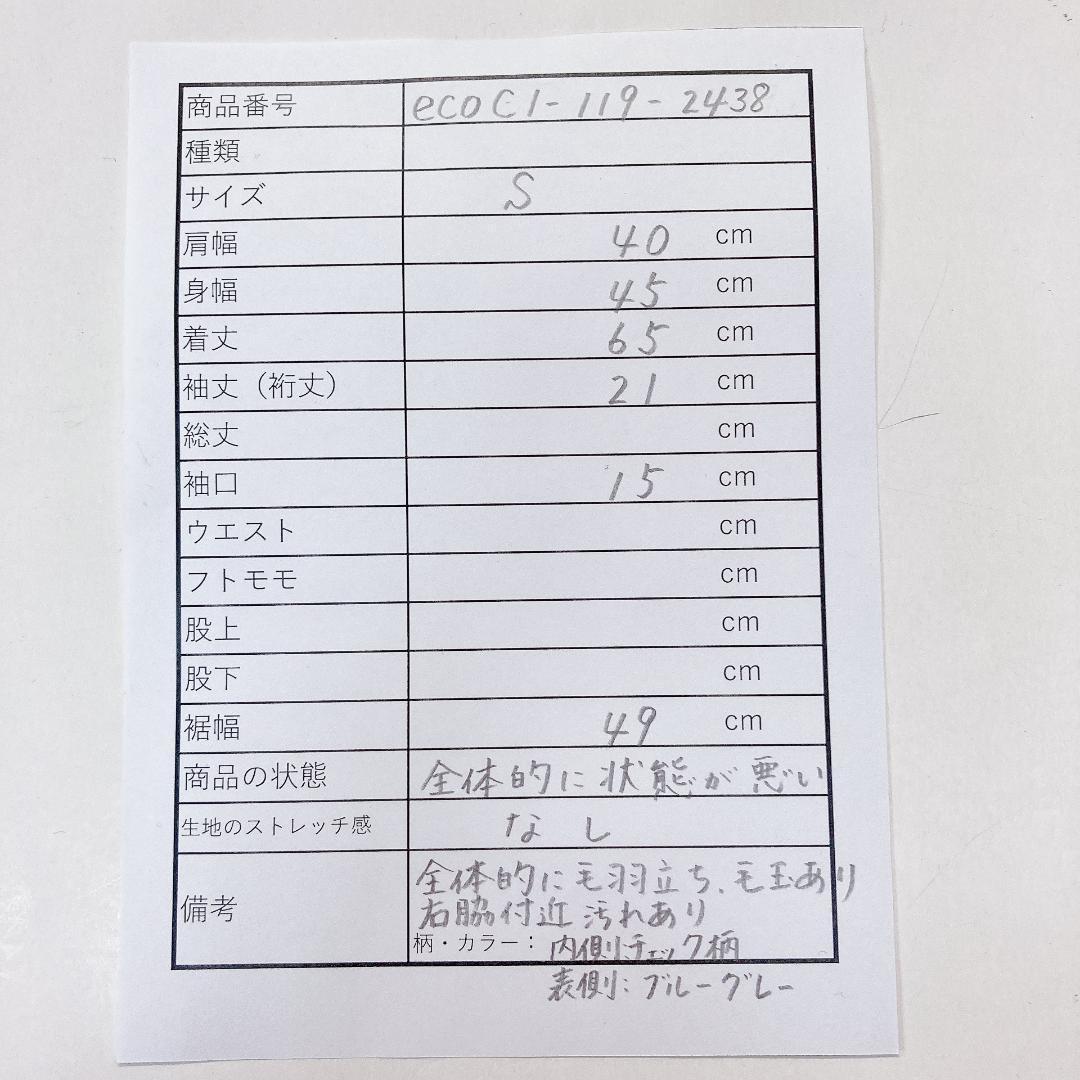 商品番号 ecoC1-119-2438
種類
サイズ S
肩幅 40 cm
身幅 45 cm
着丈 65 cm
袖丈（裄丈） 21 cm
総丈 cm
袖口 15 cm
ウエスト cm
フトモモ cm
股上 cm
股下 cm
裾幅 49 cm
商品の状態 全体的に状態が悪い
生地のストレッチ感 なし
備考 全体的に毛羽立ち、毛玉あり
右脇付近汚れあり
柄・カラー： 内側:チェック柄
表側:ブルーグレー